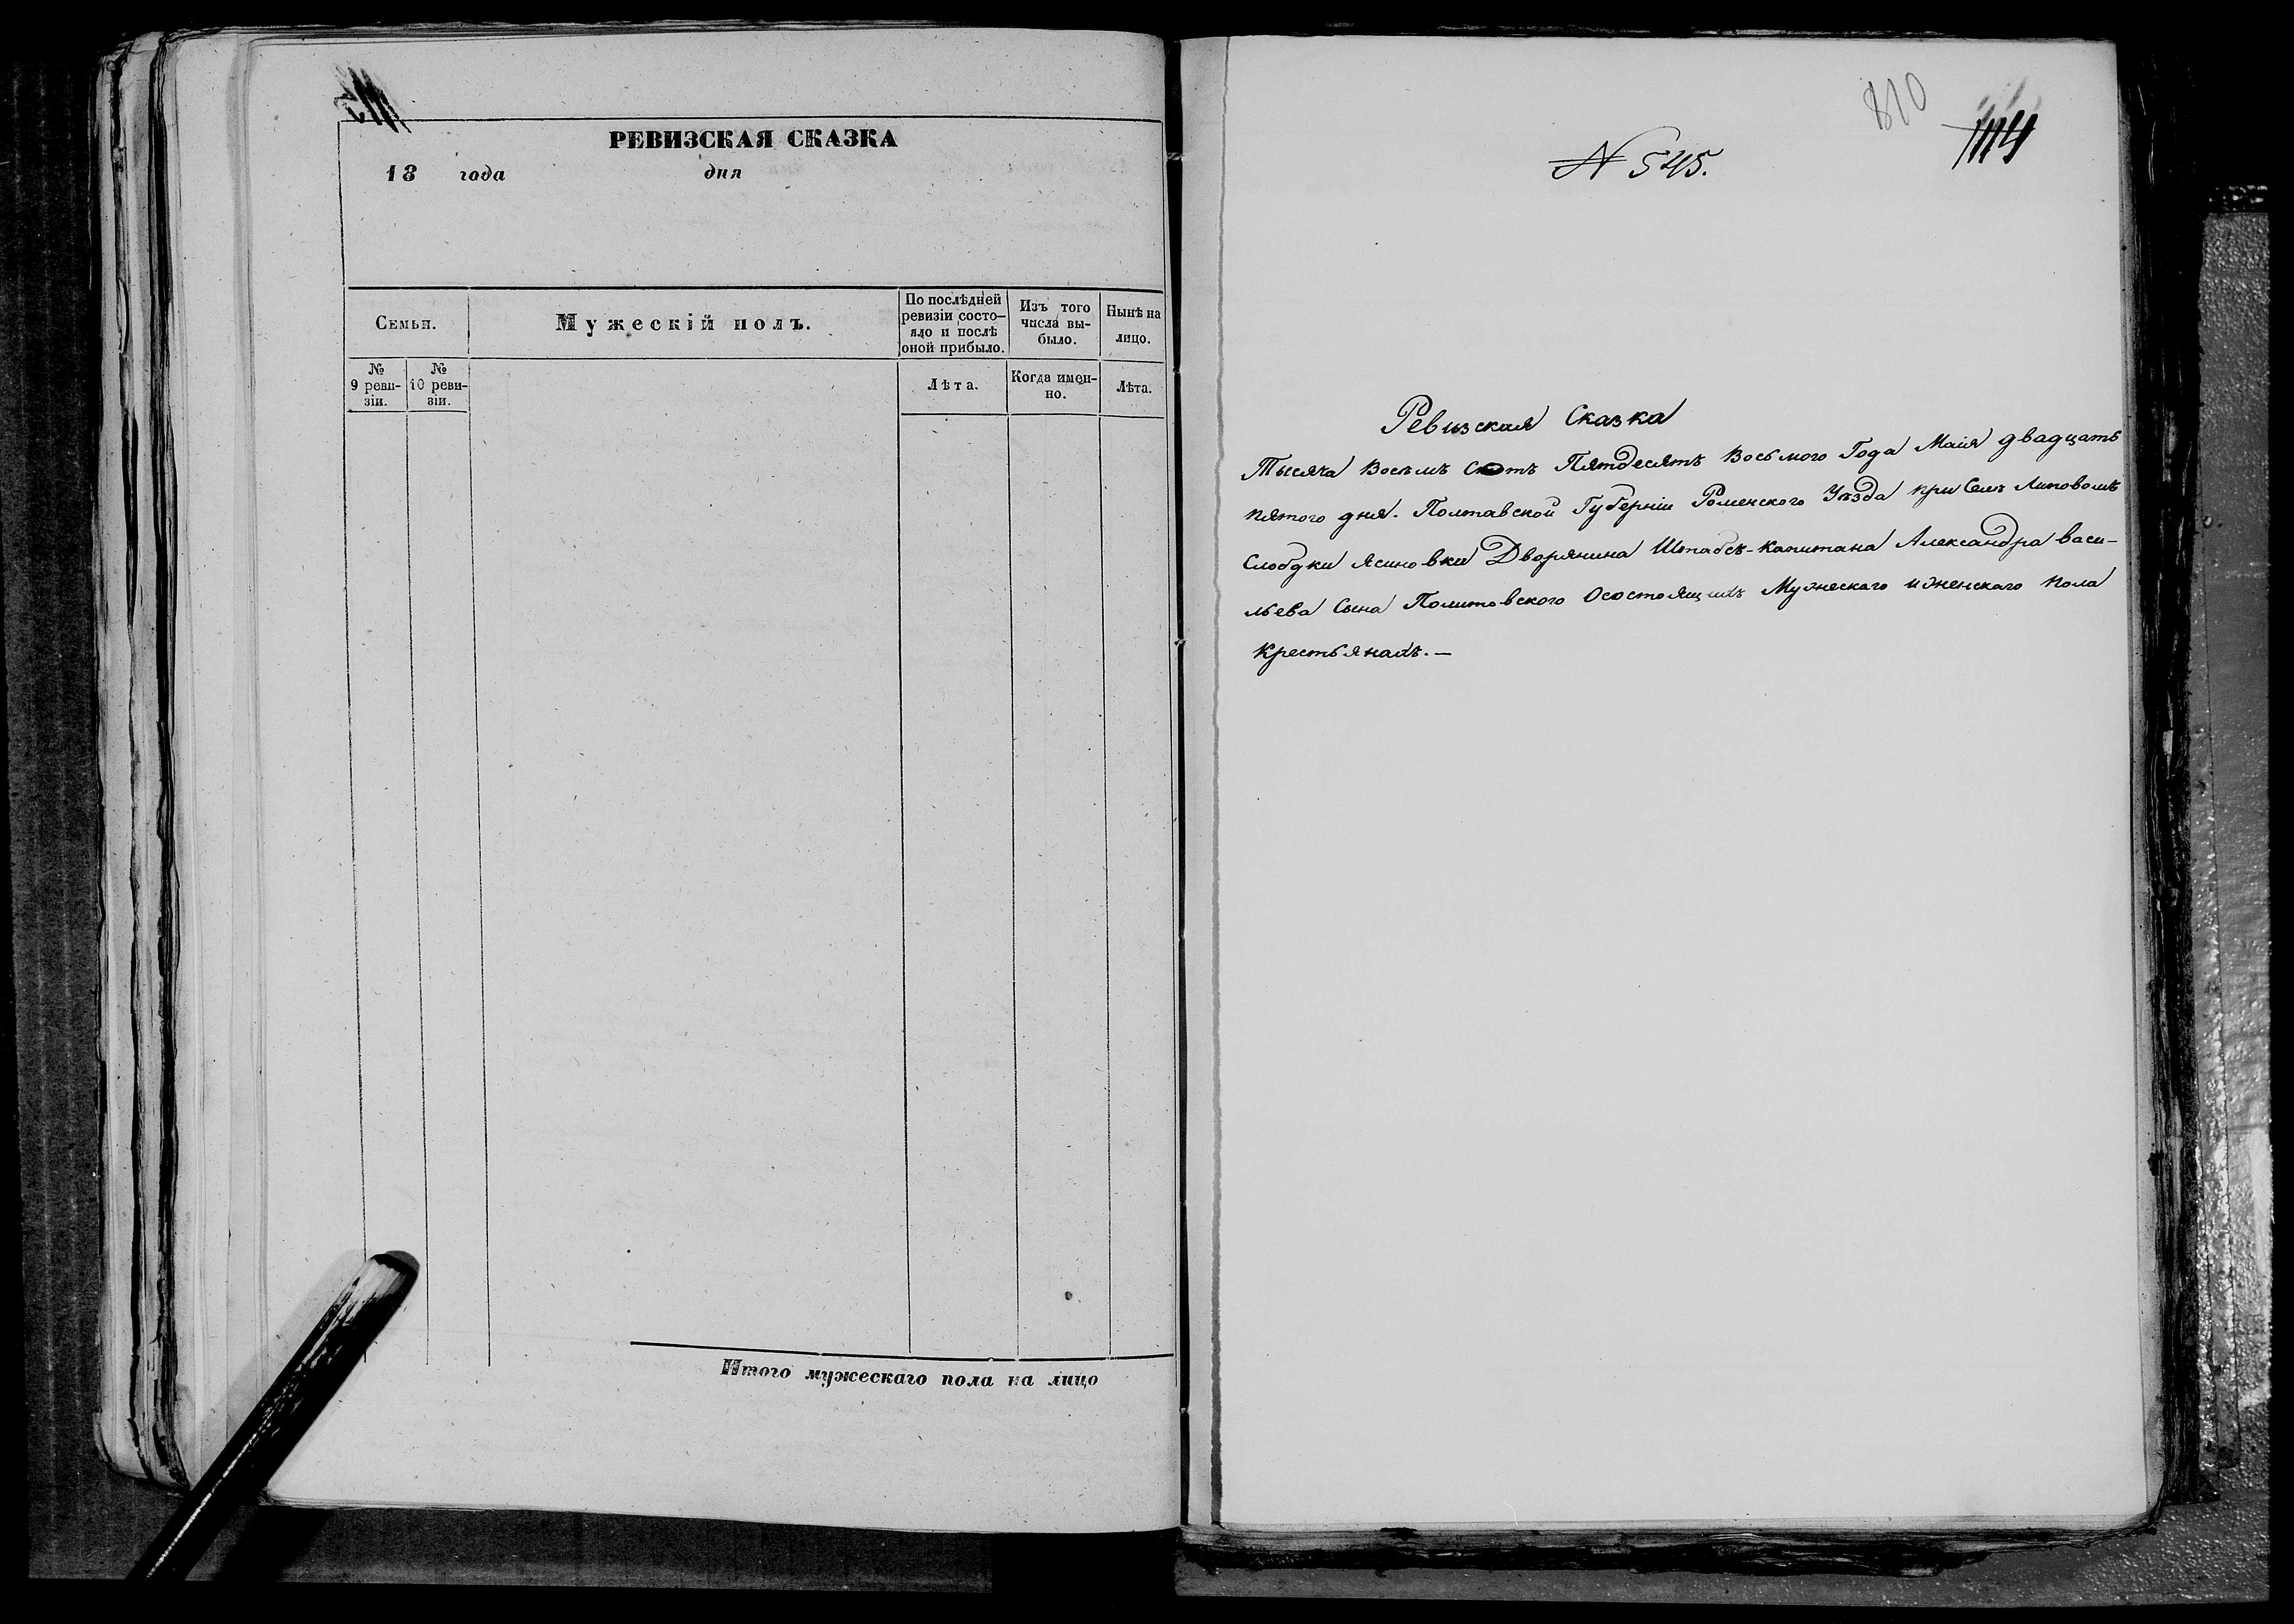 РЕВИЗСКАЯ СКАЗКА
18 года дня
Семьи.
Мужескій полъ.
По послѣдней ревизіи состо-
яло и послѣ оной прибыло.
Изъ того числа вы-
было.
Нынѣ на лицо.
№ 9 реви-
зіи.
№ 10 реви-
зіи.
Лѣта.
Когда имен-
но.
Лѣта.
Итого мужескаго пола на лицо
810
N 545.
Ревизская Сказка
Тысяча Восемь Сотъ Пятдесятъ Восьмого Года Маія двадцать
пятого дня. Полтавской Губерніи Роменского Уѣзда при Селѣ Липовомъ
Слободки Ясиновки Дворянина Штабсъ-Капитана Александра Васи-
льева Сына Политовского Осостоящихъ Мужескаго иженскаго пола
Крестьянахъ.—